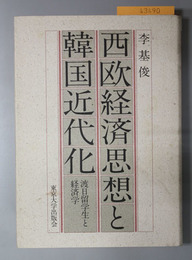 李基俊
西欧経済思想と
韓国近代化
渡日留学生と
経済学
東京大学出版会